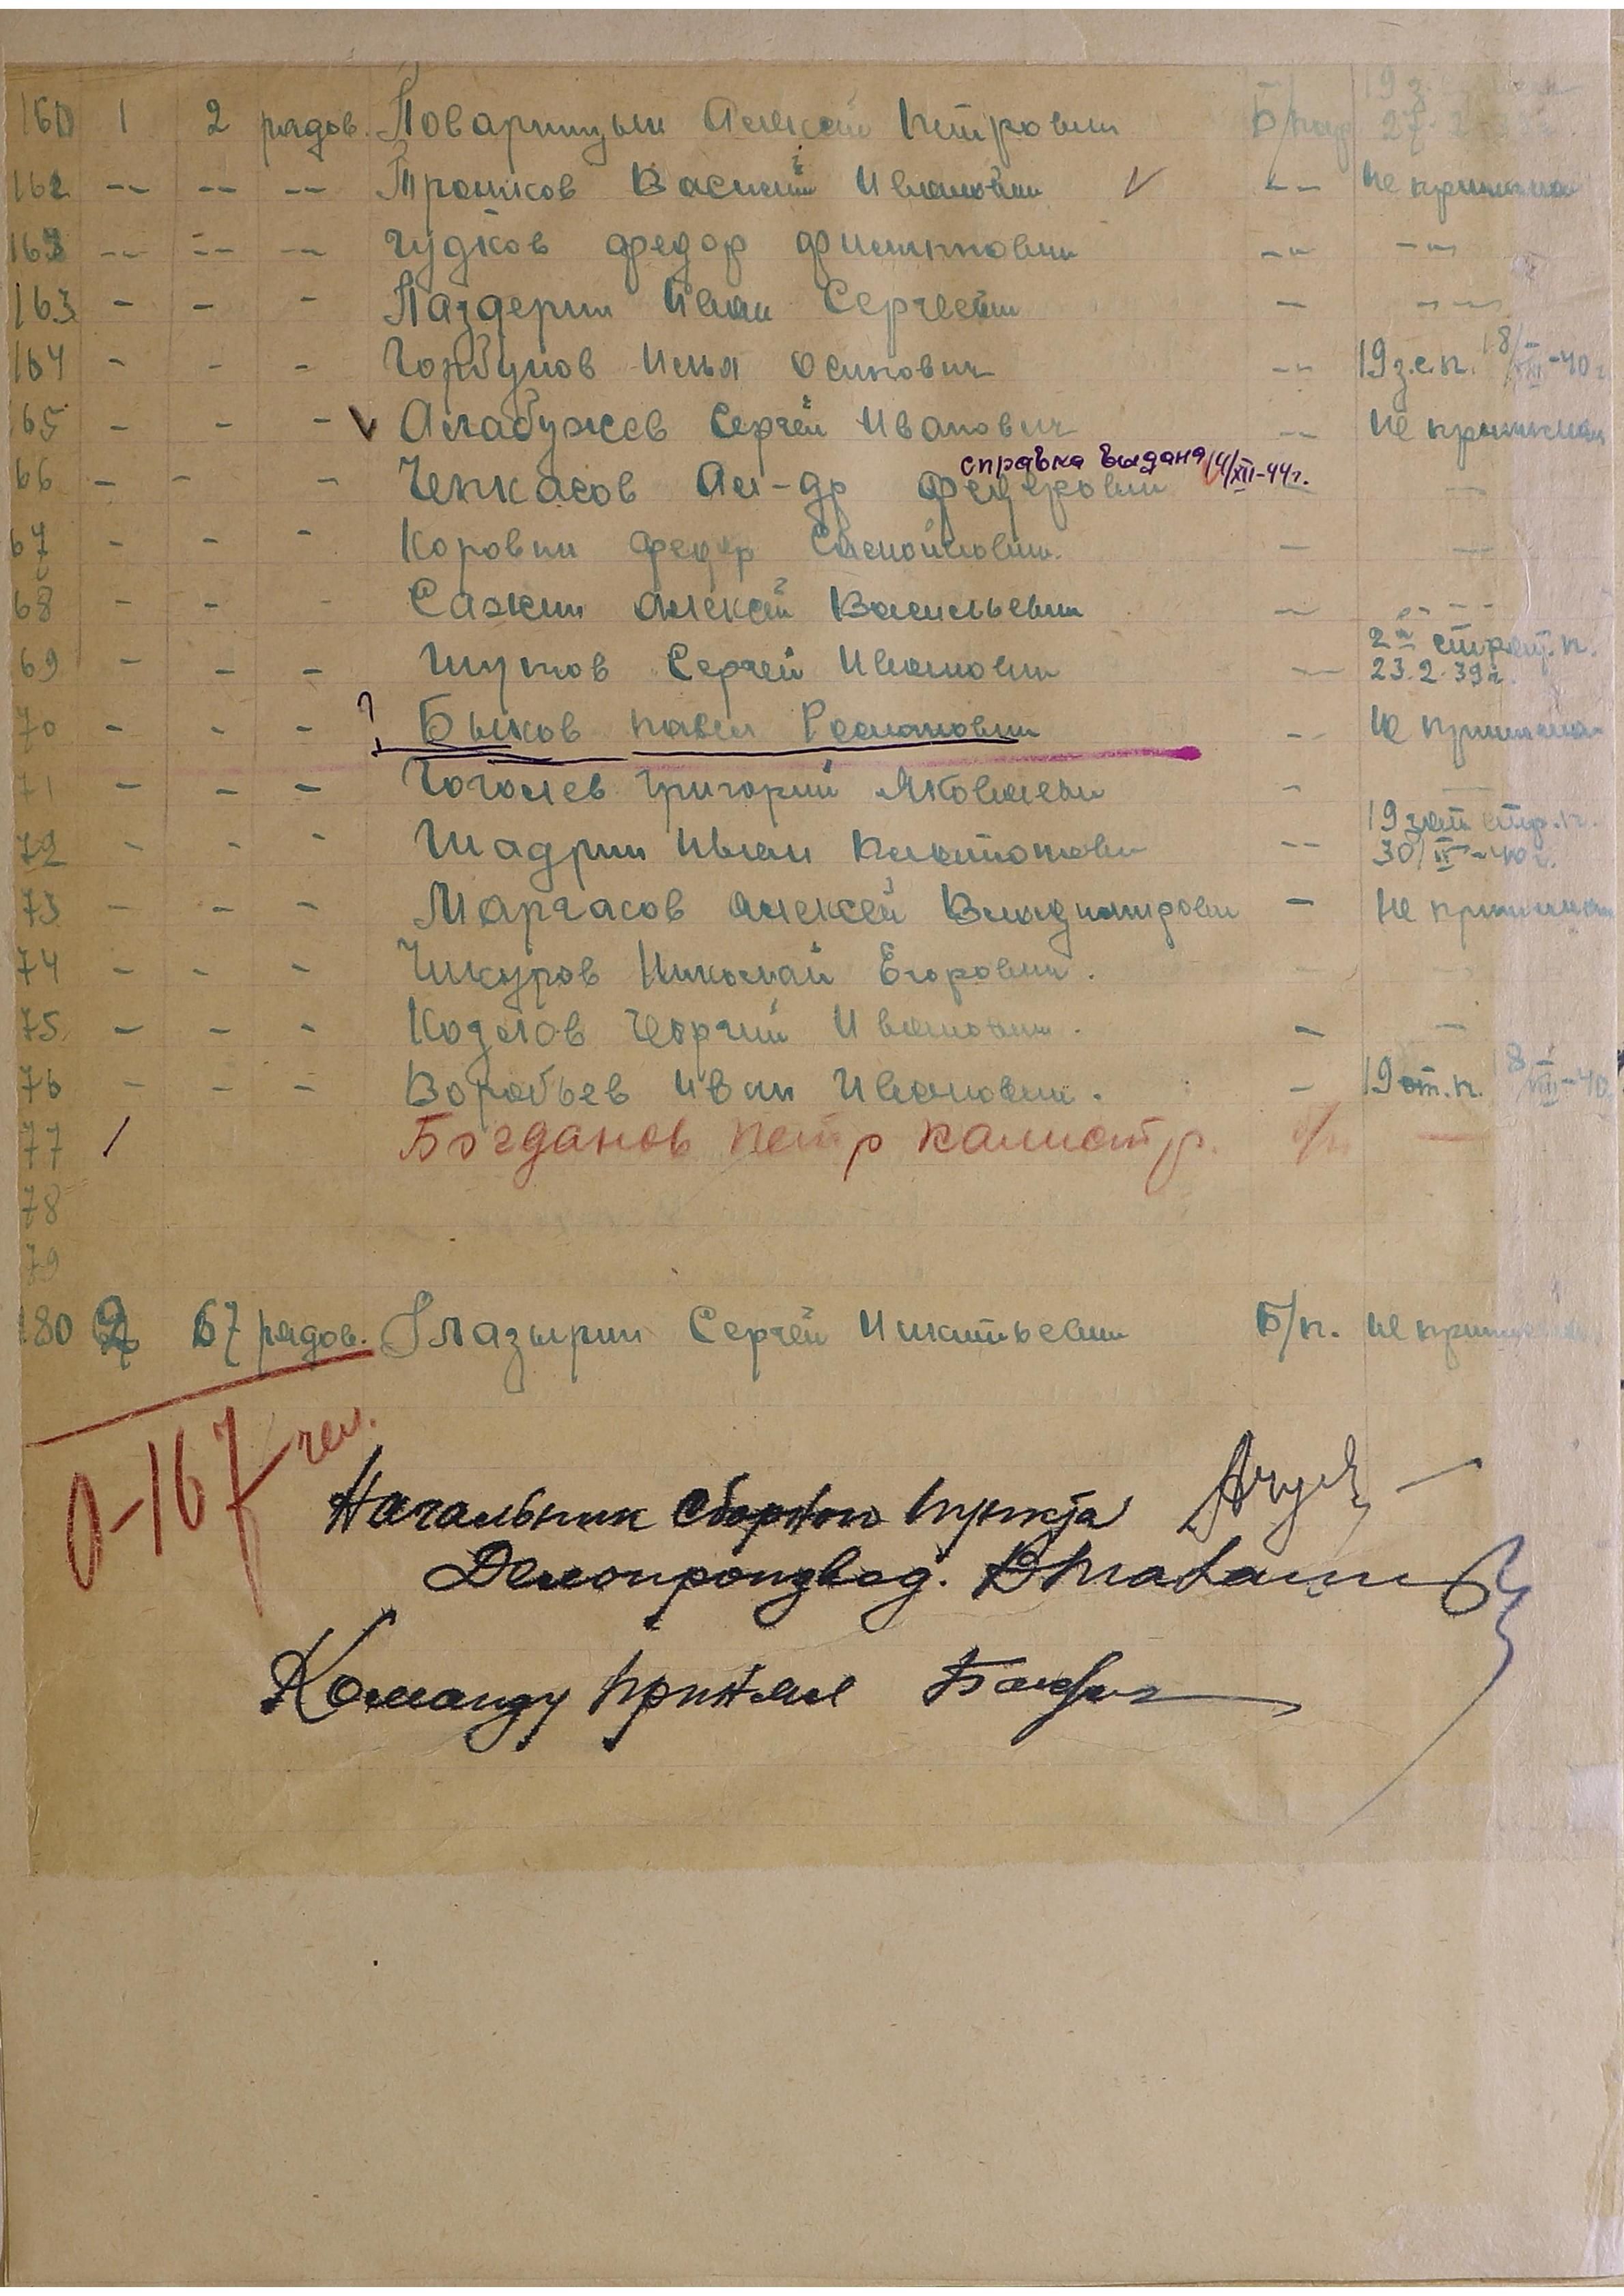 160 1 2 рядов. Поварницын Алексей Петрович Б/пар 19 з. 27.
161 -- -- -- Трошков Василий Иванович V -- Не принимал
162 -- -- -- Чудков Федор Филиппович -- --
163 - - - Паздерин Иван Сергеевич - ---
164 - - - Горбунов Илья Осипович -- 19 з.с.п. 18/XII-40 г.
65 - - - V Алабужев Сергей Иванович -- Не принимал
справка выдана 14/XII-44г.
66 - - - Черкасов Ал-др Федорович - -
67 - - - Коровин Федор - -
68 - - - Сажин Алексей Васильевич -- ---
69 - - - Шутов Сергей Иванович -- 2й стрел.п. 23.2.39г.
70 - - - ? Быков Павел Романович -- Не принимал
71 - - - Гоголев Григорий Яковлевич - -
72 - - - Шадрин Иван Капитонович -- 19 зап стр.п. 30/ -40г.
73 - - - Маргасов Алексей Владимирович - Не принимал
74 - - - Чикуров Николай Егорович.
75 - - - Козлов Георгий Иванович. - -
76 - - - Воробьев Иван Иванович. - 19 от.п. 8/XII-40
77 / Богданов Петр Калистр. б/п —
78
79
180 2 67 рядов. Глазырин Сергей Никитьевич Б/п. Не принимал
0-167 чел.
Начальник Сборного Пункта
Делопроизвод.
Команду принял